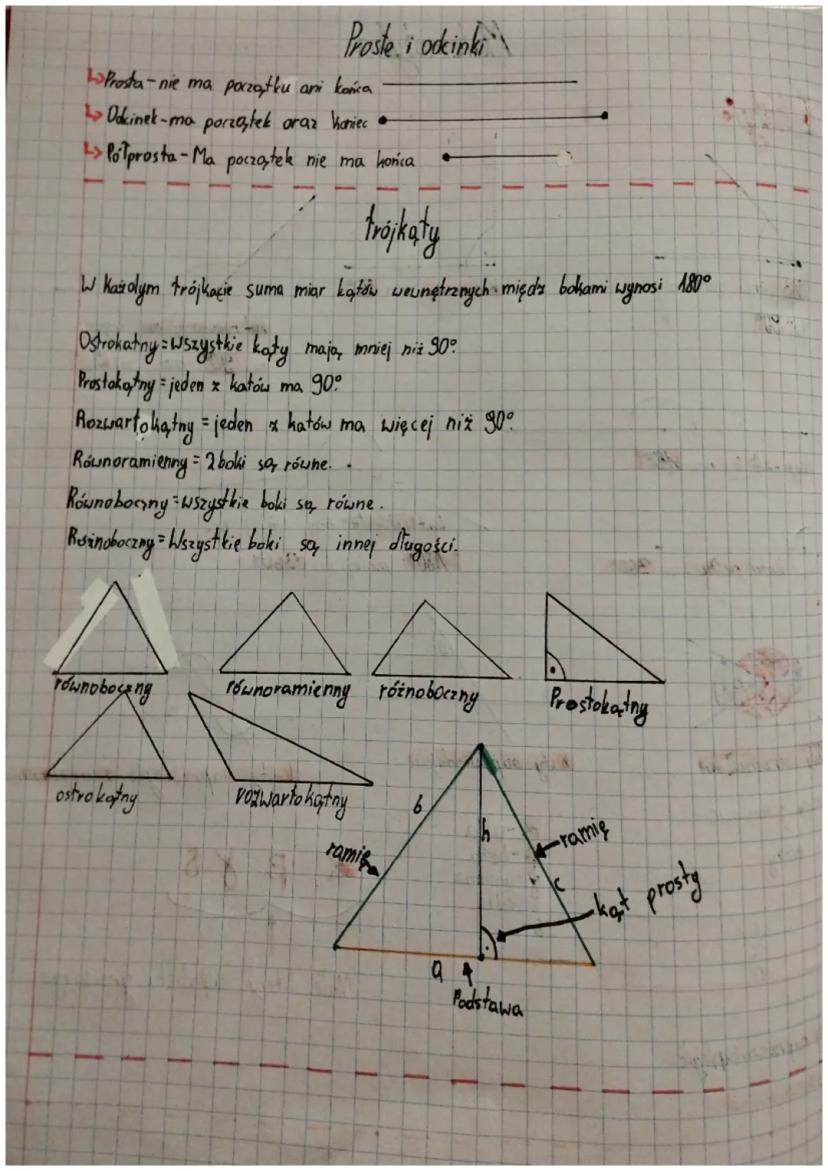 Proste i odcinki
↳Prosta - nie ma początku ani końca
↳Odcinek - ma początek oraz koniec
↳Półprosta - Ma początek nie ma końca
trójkąty
W każdym trójkącie suma miar kątów wewnętrznych między bokami wynosi 180°
Ostrokatny = wszystkie kąty mają mniej niż 90°.
Prostokątny = jeden z katów ma 90°.
Rozwartokątny = jeden z katów ma więcej niż 90°.
Równoramienny = 2 boki są równe.
Równoboczny = wszystkie boki są równe.
Różnoboczny = Wszystkie boki są innej długości.
równoboczny równoramienny różnoboczny Prostokątny
ostrokątny rozwartokątny
b
h
ramię
ramię
c
kąt prosty
a
Podstawa